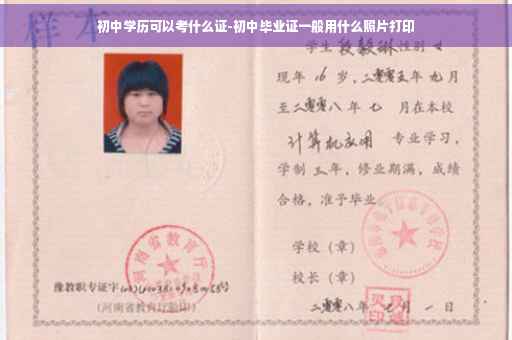 初中学历可以考什么证-初中毕业证一般用什么照片打印
样本
学生 段毅琳 性别 女
现年 16 岁，二零零五年 九月
至二零零八年 七 月在本校
计算机应用 专业学习，
学制 三年，修业期满，成绩
合格，准予毕业
学校（章）
校长（章）
二零零八年 七月 一日
河南省教育厅
豫教职专证字
（河南省教育厅验印）